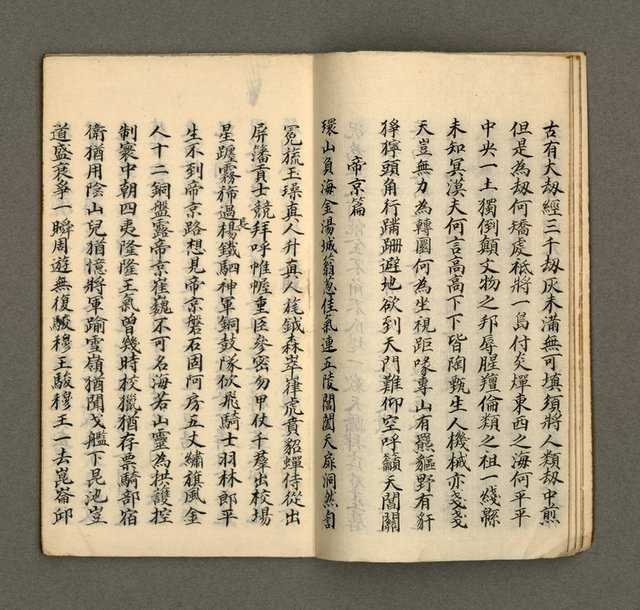 古有大劫經三千劫灰未滿無可填須將人類劫中煎
但是為劫何矯虔秪將一島付炎燀東西之海何平平
中央一土獨倒顛文物之邦辱腥羶倫類之祖一綫縣
未知冥漠夫何言高高下下皆陶甄生人機械亦戔戔
天豈無力為轉圜何為坐視距喙專山有羆貙野有豻
猙獰頭角行蹣跚避地欲到天門難仰空呼籲天閽關
帝京篇
環山負海金湯城蓊葱佳氣連五陵閶闔天扉洞然訇
冕旒玉璪真人升真人旄鉞森崒嵂虎賁貂蟬侍從出
屏籓貢士競拜呼帷幄重臣參密勿甲仗千羣出校場
星躔霧旆過長楊鐵駟神軍銅鼓隊佽飛騎士羽林郎平
生不到帝京路想見帝京磐石固阿房五丈繡旗風金
人十二銅盤露帝京窪巍不可名海若山靈為拱護控
制寰中朝四夷隆隆王氣曾幾時校獵猶存票騎部宿
衛猶用陰山兒猶憶將軍踰雪嶺猶聞戈艦下昆池豈
道盛衰爭一瞬周遊無復駿穆王駿穆王一去崑崙邱